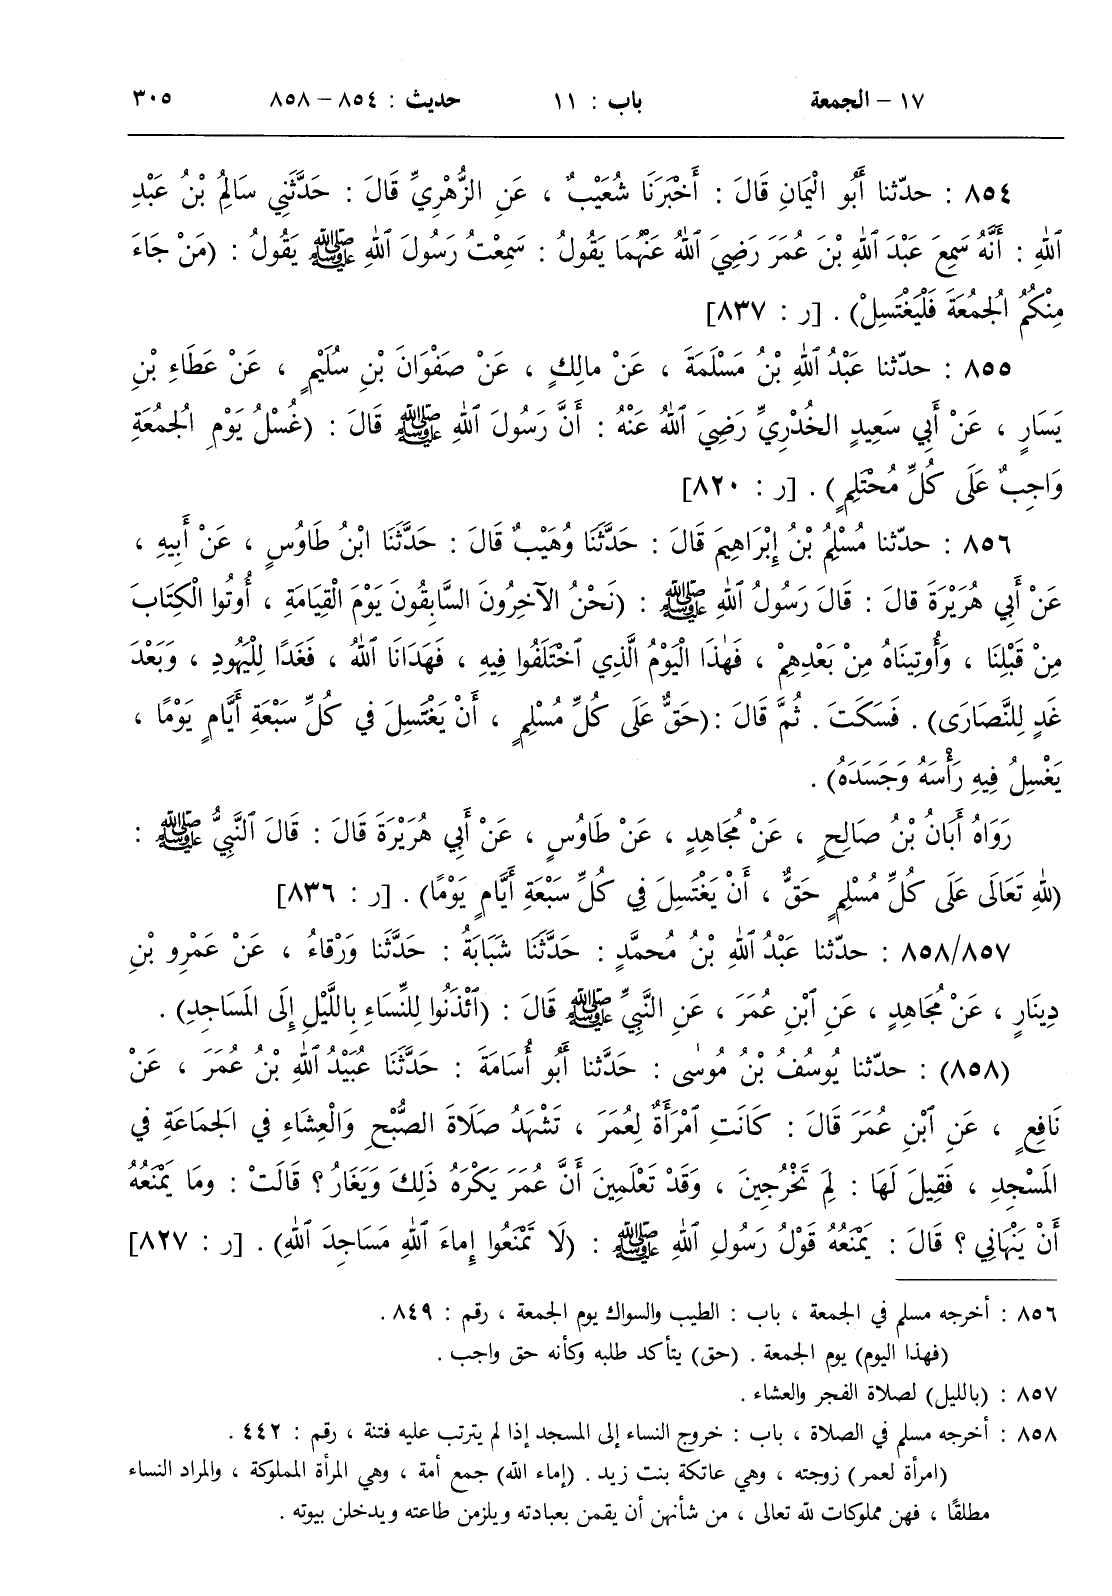 ١٧ – الجمعة باب : ١١ حديث : ٨٥٤ – ٨٥٨ ٣٠٥
٨٥٤ : حدّثنا أَبُو الْيَمانِ قَالَ : أَخْبَرَنَا شُعَيْبٌ ، عَنِ الزُّهْرِيِّ قَالَ : حَدَّثَنِي سَالِمُ بْنُ عَبْدِ
ٱللهِ : أَنَّهُ سَمِعَ عَبْدَ ٱللهِ بْنَ عُمَرَ رَضِيَ ٱللهُ عَنْهُمَا يَقُولُ : سَمِعْتُ رَسُولَ ٱللهِ ﷺ يَقُولُ : (مَنْ جَاءَ
مِنْكُمُ الجُمُعَةَ فَلْيَغْتَسِلْ) . [ر : ٨٣٧]
٨٥٥ : حدّثنا عَبْدُ ٱللهِ بْنُ مَسْلَمَةَ ، عَنْ مالِكٍ ، عَنْ صَفْوَانَ بْنِ سُلَيْمٍ ، عَنْ عَطَاءِ بْنِ
يَسَارٍ ، عَنْ أَبِي سَعِيدٍ الخُدْرِيِّ رَضِيَ ٱللهُ عَنْهُ : أَنَّ رَسُولَ ٱللهِ ﷺ قَالَ : (غُسْلُ يَوْمِ الجُمُعَةِ
وَاجِبٌ عَلَى كُلِّ مُحْتَلِمٍ) . [ر : ٨٢٠]
٨٥٦ : حدّثنا مُسْلِمُ بْنُ إِبْرَاهِيمَ قَالَ : حَدَّثَنَا وُهَيْبٌ قَالَ : حَدَّثَنَا ابْنُ طَاوُسٍ ، عَنْ أَبِيهِ ،
عَنْ أَبِي هُرَيْرَةَ قالَ : قَالَ رَسُولُ ٱللهِ ﷺ : (نَحْنُ الآخِرُونَ السَّابِقُونَ يَوْمَ الْقِيَامَةِ ، أُوتُوا الْكِتَابَ
مِنْ قَبْلِنَا ، وَأُوتِينَاهُ مِنْ بَعْدِهِمْ ، فَهٰذَا الْيَوْمُ الَّذِي ٱخْتَلَفُوا فِيهِ ، فَهَدَانَا ٱللهُ ، فَغَدًا لِلْيَهُودِ ، وَبَعْدَ
غَدٍ لِلنَّصَارَى) . فَسَكَتَ . ثُمَّ قَالَ : (حَقٌّ عَلَى كُلِّ مُسْلِمٍ ، أَنْ يَغْتَسِلَ في كُلِّ سَبْعَةِ أَيَّامٍ يَوْمًا ،
يَغْسِلُ فِيهِ رَأْسَهُ وَجَسَدَهُ) .
رَوَاهُ أَبَانُ بْنُ صَالِحٍ ، عَنْ مُجَاهِدٍ ، عَنْ طَاوُسٍ ، عَنْ أَبِي هُرَيْرَةَ قَالَ : قَالَ النَّبِيُّ ﷺ :
(لِلهِ تَعَالَى عَلَى كُلِّ مُسْلِمٍ حَقٌّ ، أَنْ يَغْتَسِلَ فِي كُلِّ سَبْعَةِ أَيَّامٍ يَوْمًا) . [ر : ٨٣٦]
٨٥٨/٨٥٧ : حدّثنا عَبْدُ ٱللهِ بْنُ محمَّدٍ : حَدَّثَنَا شَبَابَةُ : حَدَّثَنَا وَرْقاءُ ، عَنْ عَمْرِو بْنِ
دِينَارٍ ، عَنْ مُجَاهِدٍ ، عَنِ ٱبْنِ عُمَرَ ، عَنِ النَّبِيِّ ﷺ قالَ : (ٱئْذَنُوا لِلنِّسَاءِ بِاللَّيْلِ إِلَى المَسَاجِدِ) .
(٨٥٨) : حدّثنا يُوسُفُ بْنُ مُوسٰى : حَدَّثَنا أَبُو أُسَامَةَ : حَدَّثَنَا عُبَيْدُ ٱللهِ بْنُ عُمَرَ ، عَنْ
نَافِعٍ ، عَنِ ٱبْنِ عُمَرَ قَالَ : كَانَتِ ٱمْرَأَةٌ لِعُمَرَ ، تَشْهَدُ صَلَاةَ الصُّبْحِ وَالْعِشَاءِ في الجَماعَةِ في
المَسْجِدِ ، فَقِيلَ لَهَا : لِمَ تَخْرُجِينَ ، وَقَدْ تَعْلَمِينَ أَنَّ عُمَرَ يَكْرَهُ ذَلِكَ وَيَغَارُ ؟ قَالَتْ : وَما يَمْنَعُهُ
أَنْ يَنْهَانِي ؟ قَالَ : يَمْنَعُهُ قَوْلُ رَسُولِ ٱللهِ ﷺ : (لَا تَمْنَعُوا إِماءَ ٱللهِ مَسَاجِدَ ٱللهِ) . [ر : ٨٢٧]
٨٥٦ : أخرجه مسلم في الجمعة ، باب : الطيب والسواك يوم الجمعة ، رقم : ٨٤٩ .
(فهذا اليوم) يوم الجمعة . (حق) يتأكد طلبه وكأنه حق واجب .
٨٥٧ : (بالليل) لصلاة الفجر والعشاء .
٨٥٨ : أخرجه مسلم في الصلاة ، باب : خروج النساء إلى المسجد إذا لم يترتب عليه فتنة ، رقم : ٤٤٢ .
(امرأة لعمر) زوجته ، وهي عاتكة بنت زيد . (إماء الله) جمع أمة ، وهي المرأة المملوكة ، والمراد النساء
مطلقًا ، فهن مملوكات لله تعالى ، من شأنهن أن يقمن بعبادته ويلزمن طاعته ويدخلن بيوته .